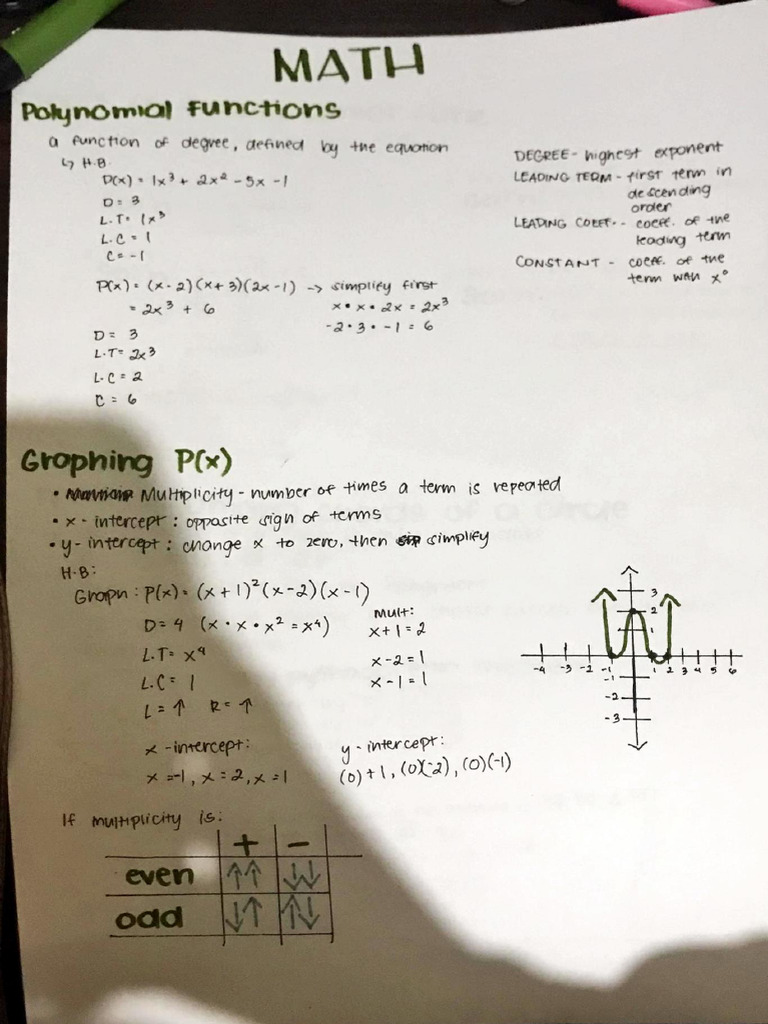 MATH
Polynomial Functions
a function of degree, defined by the equation
↳ H.B.
P(x) = 1x³ + 2x² - 5x - 1
D = 3
L.T = 1x³
L.C = 1
C = -1
DEGREE - highest exponent
LEADING TERM - first term in
descending
order
LEADING COEFF. - coeff. of the
leading term
CONSTANT - coeff. of the
term with x⁰
P(x) = (x-2)(x+3)(2x-1) → simplify first
= 2x³ + 6
x • x • 2x = 2x³
-2 • 3 • -1 = 6
D = 3
L.T = 2x³
L.C = 2
C = 6
Graphing P(x)
• Multiplicity - number of times a term is repeated
• x - intercept : opposite sign of terms
• y - intercept : change x to zero, then simplify
H.B:
Graph : P(x) = (x+1)²(x-2)(x-1)
D = 4 (x • x • x² = x⁴)
L.T = x⁴
L.C = 1
L = ↑ R = ↑
Mult:
x+1 = 2
x-2 = 1
x-1 = 1
3
2
1
-4 -3 -2 -1 1 2 3 4 5 6
-1
-2
-3
x - intercept:
x = -1, x = 2, x = 1
y - intercept:
(0)+1, (0)(-2), (0)(-1)
If multiplicity is:
+ -
even ↑↑ ↓↓
odd ↓↑ ↑↓